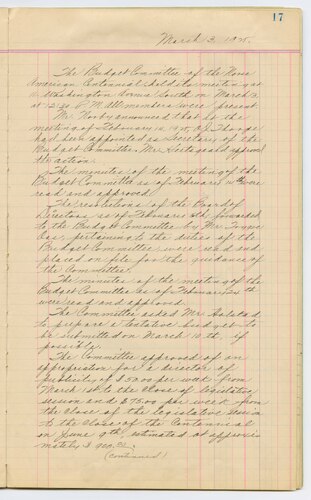 17
March 3, 1925.
The Budget Committee of the Norse
American Centennial held its meeting at
Washington Avenue South on March 3
at 2:30 P.M. All members were present.
Mr. Norby announced that at the
meeting of February
had been appointed as Secretary of the
Budget Committee. Mr. approved
the action.
The minutes of the meeting of the
Budget Committee as of February were
read and approved.
The resolutions of the Board of
Directors as of February forwarded
to the Budget Committee by Mr.
pertaining to the duties of the
Budget Committee were read and
placed on file for the guidance of
the Committee.
The minutes of the meeting of the
Budget Committee as of February
were read and approved.
The Committee asked Mr.
to prepare a tentative budget to
be submitted on March 10th, if
possible.
The Committee approved of an
appropriation for a director of
publicity of $50.00 per week from
March 1st to the close of legislative
session and $75.00 per week from
the close of the legislative session
to the close of the Centennial
on June 9th estimated at approxi-
mately $900.
(continued)